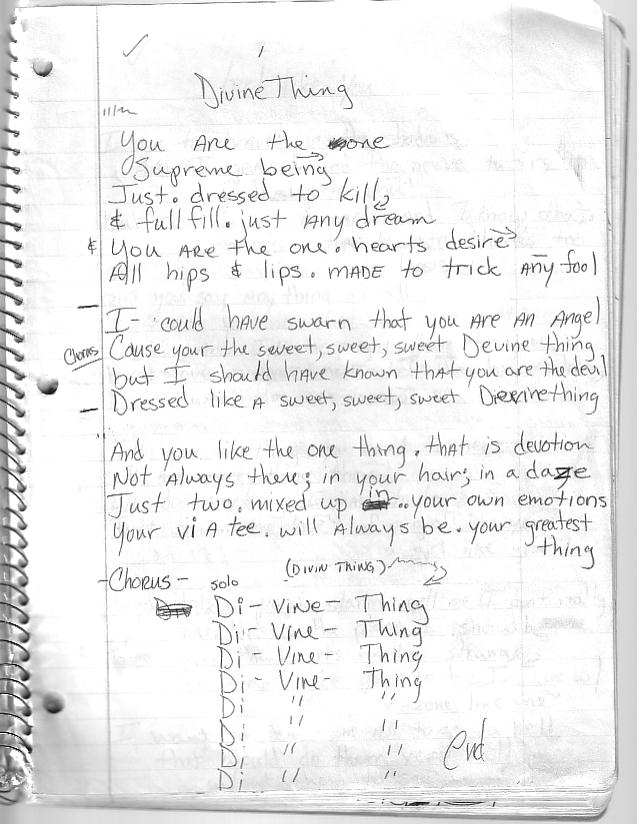 Divine Thing
You Are the one
Supreme being
Just. dressed to kill
& full fill. just Any dream
& You ARE the one. hearts desire
All hips & lips. MADE to trick Any fool
I- could hAve swarn that you Are An Angel
Chorus
Cause your the sweet, sweet, sweet Devine thing
but I should hAve known thAt you are the devil
Dressed like A sweet, sweet, sweet Divine thing
And you like the one thing. thAt is devotion
Not Always there; in your hair; in a daze
Just two. mixed up in.. your own emotions
Your vi A tee. will Always be. your greatest
thing
-Chorus- solo (DIVIN THING)
Di - Vine - Thing
Di - Vine - Thing
Di - Vine - Thing
Di - Vine - Thing
Di " "
Di " "
Di " "
Di " "
end